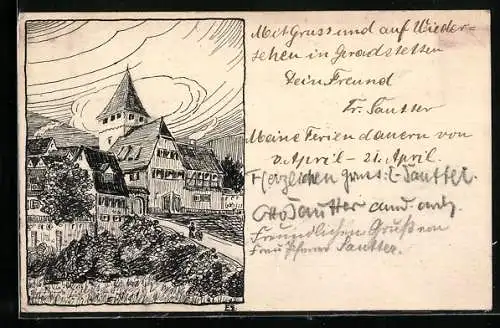 Mit Gruss und auf Wieder-
sehen in Gradstetten
Dein Freund
Fr. Sautter
Meine Ferien dauern von
April – 21. April.
Herzlichen Gruss: E. Sautter.
Otto Sautter cand. arch.
Freundlichen Gruß von
Frau Pfarrer Sautter.